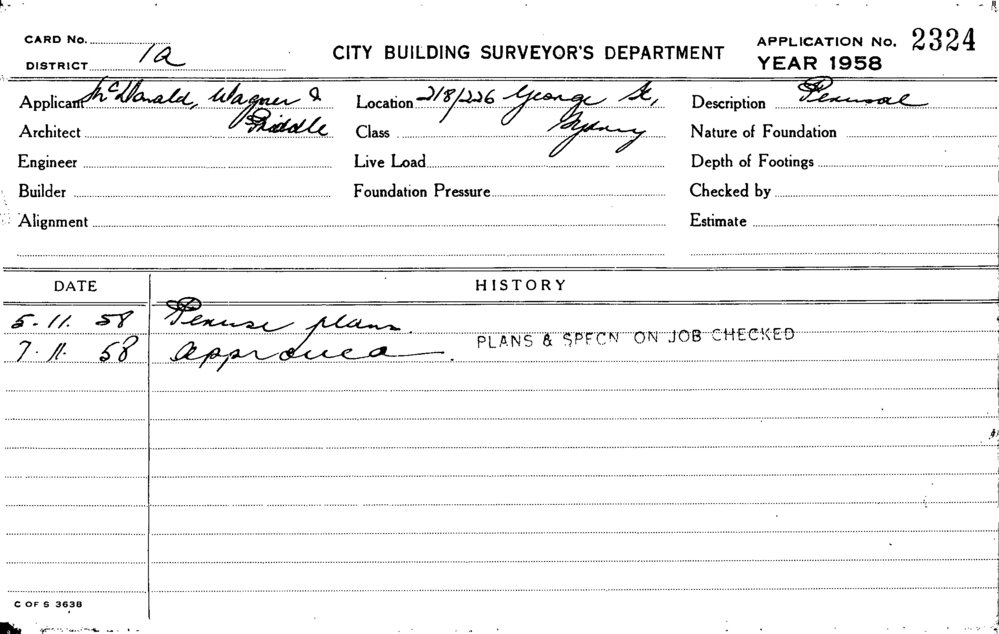 CARD No.
DISTRICT 1a
CITY BUILDING SURVEYOR'S DEPARTMENT
APPLICATION No. 2324
YEAR 1958
Applicant McDonald, Wagner &
Priddle
Location 218/226 George St,
Sydney
Description Perusal
Architect
Class
Nature of Foundation
Engineer
Live Load
Depth of Footings
Builder
Foundation Pressure
Checked by
Alignment
Estimate
DATE HISTORY
5.11.58 Peruse plans.
7.11.58 approved. PLANS & SPECN ON JOB CHECKED
C OF S 3638